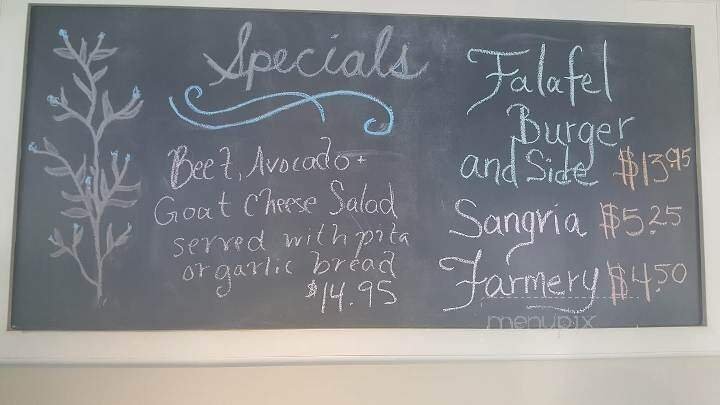 Specials
Beet, Avocado +
Goat Cheese Salad
served with pita
or garlic bread
$14.95
Falafel
Burger
and Side $13.95
Sangria $5.25
Farmery $4.50
menupix